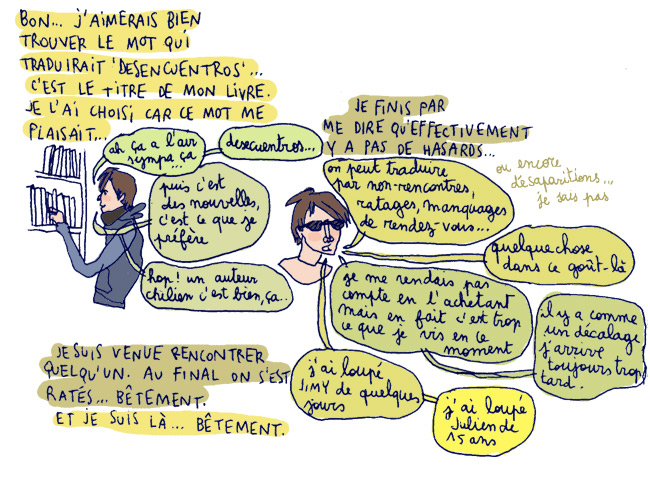 BON... J'AIMERAIS BIEN
TROUVER LE MOT QUI
TRADUIRAIT 'DESENCUENTROS'...
C'EST LE TITRE DE MON LIVRE.
JE L'AI CHOISI CAR CE MOT ME
PLAISAIT...
ah ça a l'air
sympa ça
desencuentros...
puis c'est
des nouvelles,
c'est ce que je
préfère
hop! un auteur
chilien c'est bien, ça...
JE FINIS PAR
ME DIRE QU'EFFECTIVEMENT
Y A PAS DE HASARDS...
on peut traduire
par non-rencontres,
ratages, manquages
de rendez-vous...
ou encore
désaparitions...
je sais pas
quelque chose
dans ce goût-là
je me rendais pas
compte en l'achetant
mais en fait c'est trop
ce que je vis en ce
moment
il y a comme
un décalage
j'arrive
toujours trop
tard.
j'ai loupé
JIMY de quelques
jours
j'ai loupé
Julien de
15 ans
JE SUIS VENUE RENCONTRER
QUELQU'UN. AU FINAL ON S'EST
RATÉS... BÊTEMENT.
ET JE SUIS LÀ... BÊTEMENT.